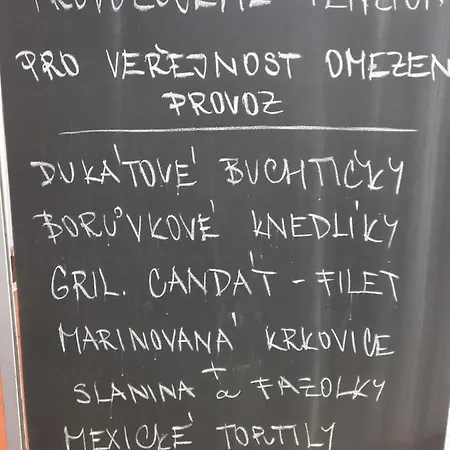 PRO VEŘEJNOST OMEZEN
PROVOZ
DUKÁTOVÉ BUCHTIČKY
BORŮVKOVÉ KNEDLÍKY
GRIL. CANDÁT - FILET
MARINOVANÁ KRKOVICE
+
SLANINA a FAZOLKY
MEXICKÉ TORTILY